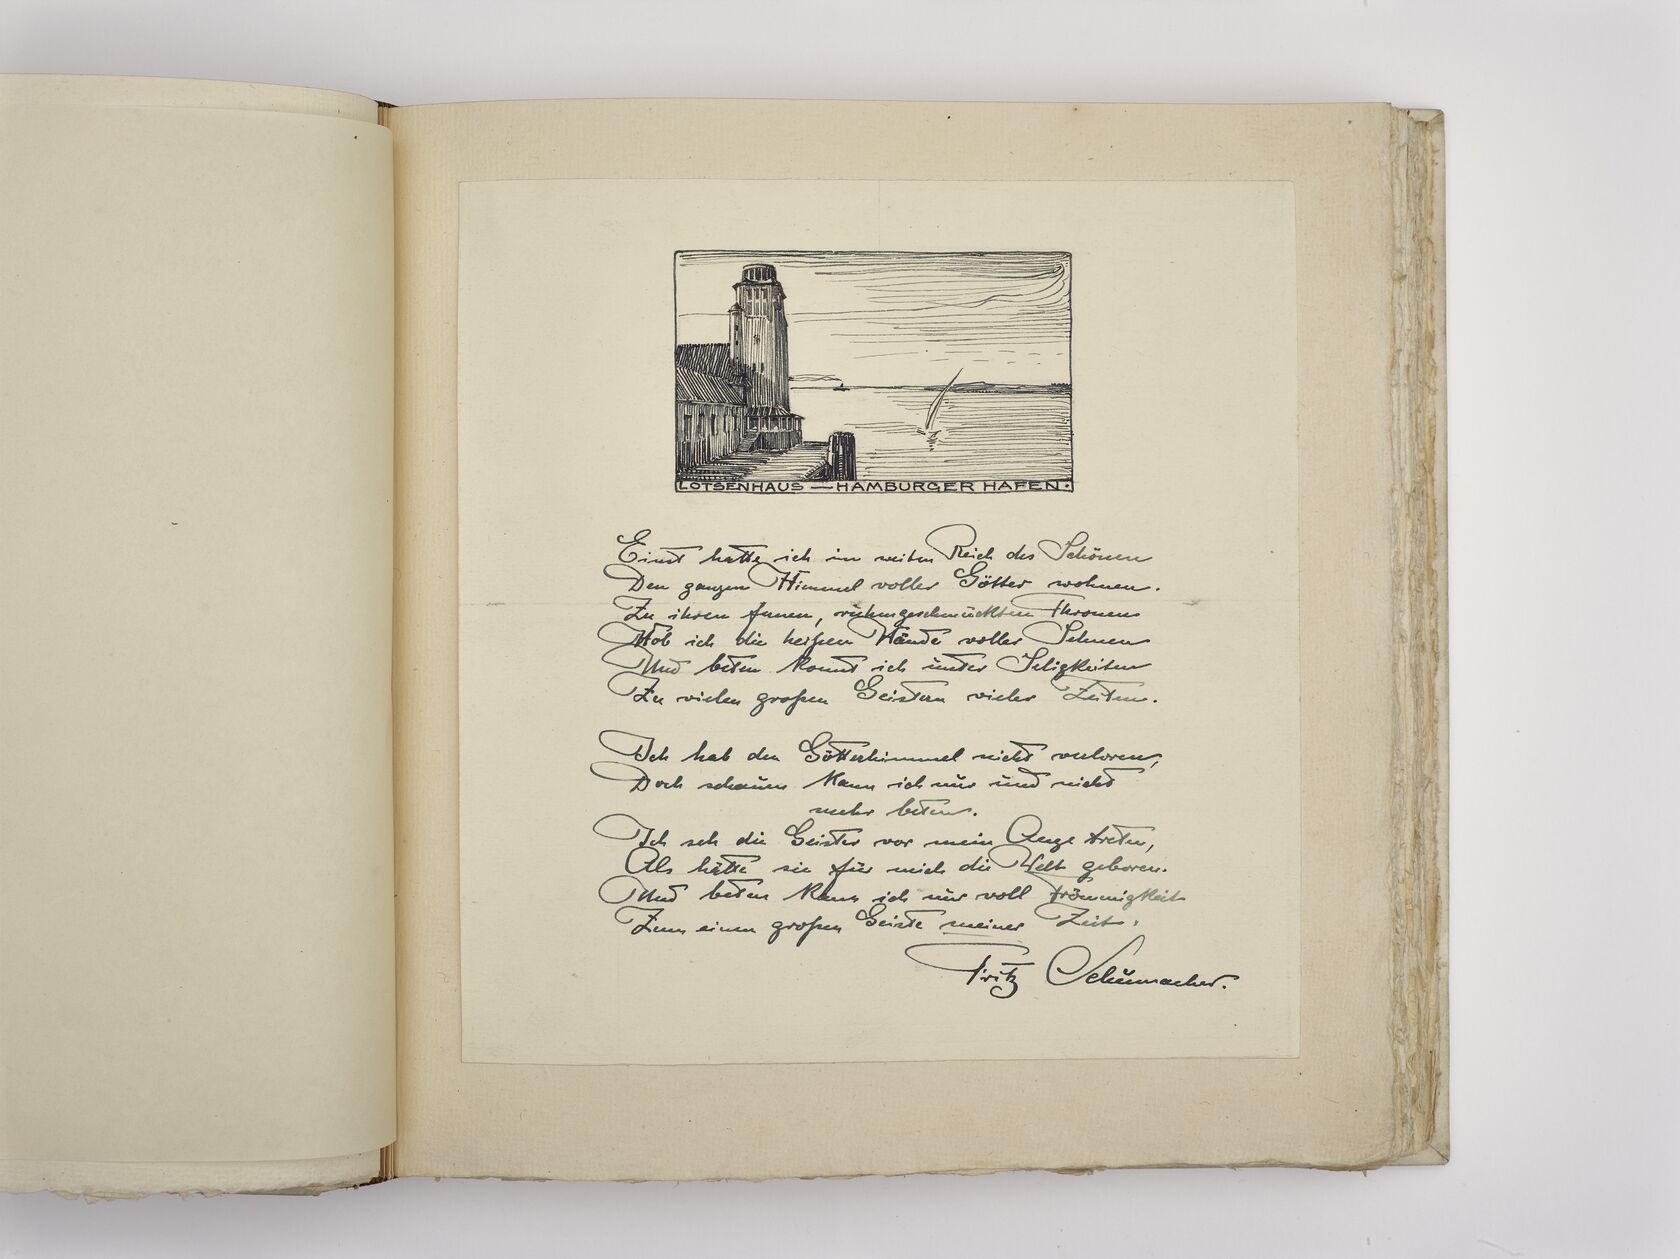 LOTSENHAUS — HAMBURGER HAFEN.
Einst hatte ich im weiten Reich des Schönen
Den ganzen Himmel voller Götter wohnen.
Zu ihren fernen, ruhmgeschmückten Thronen
Hob ich die heißen Hände voller Sehnen
Und beten konnt ich unter Seligkeiten
Zu vielen großen Geistern vieler Zeiten.
Ich hab den Götterhimmel nicht verloren,
Doch schauen kann ich nur und nicht
mehr beten.
Ich seh die Geister vor mein Auge treten,
Als hätte sie für mich die Welt geboren.
Und beten kann ich nur voll Frömmigkeit
Zum einen großen Geiste meiner Zeit.
Fritz Schumacher.